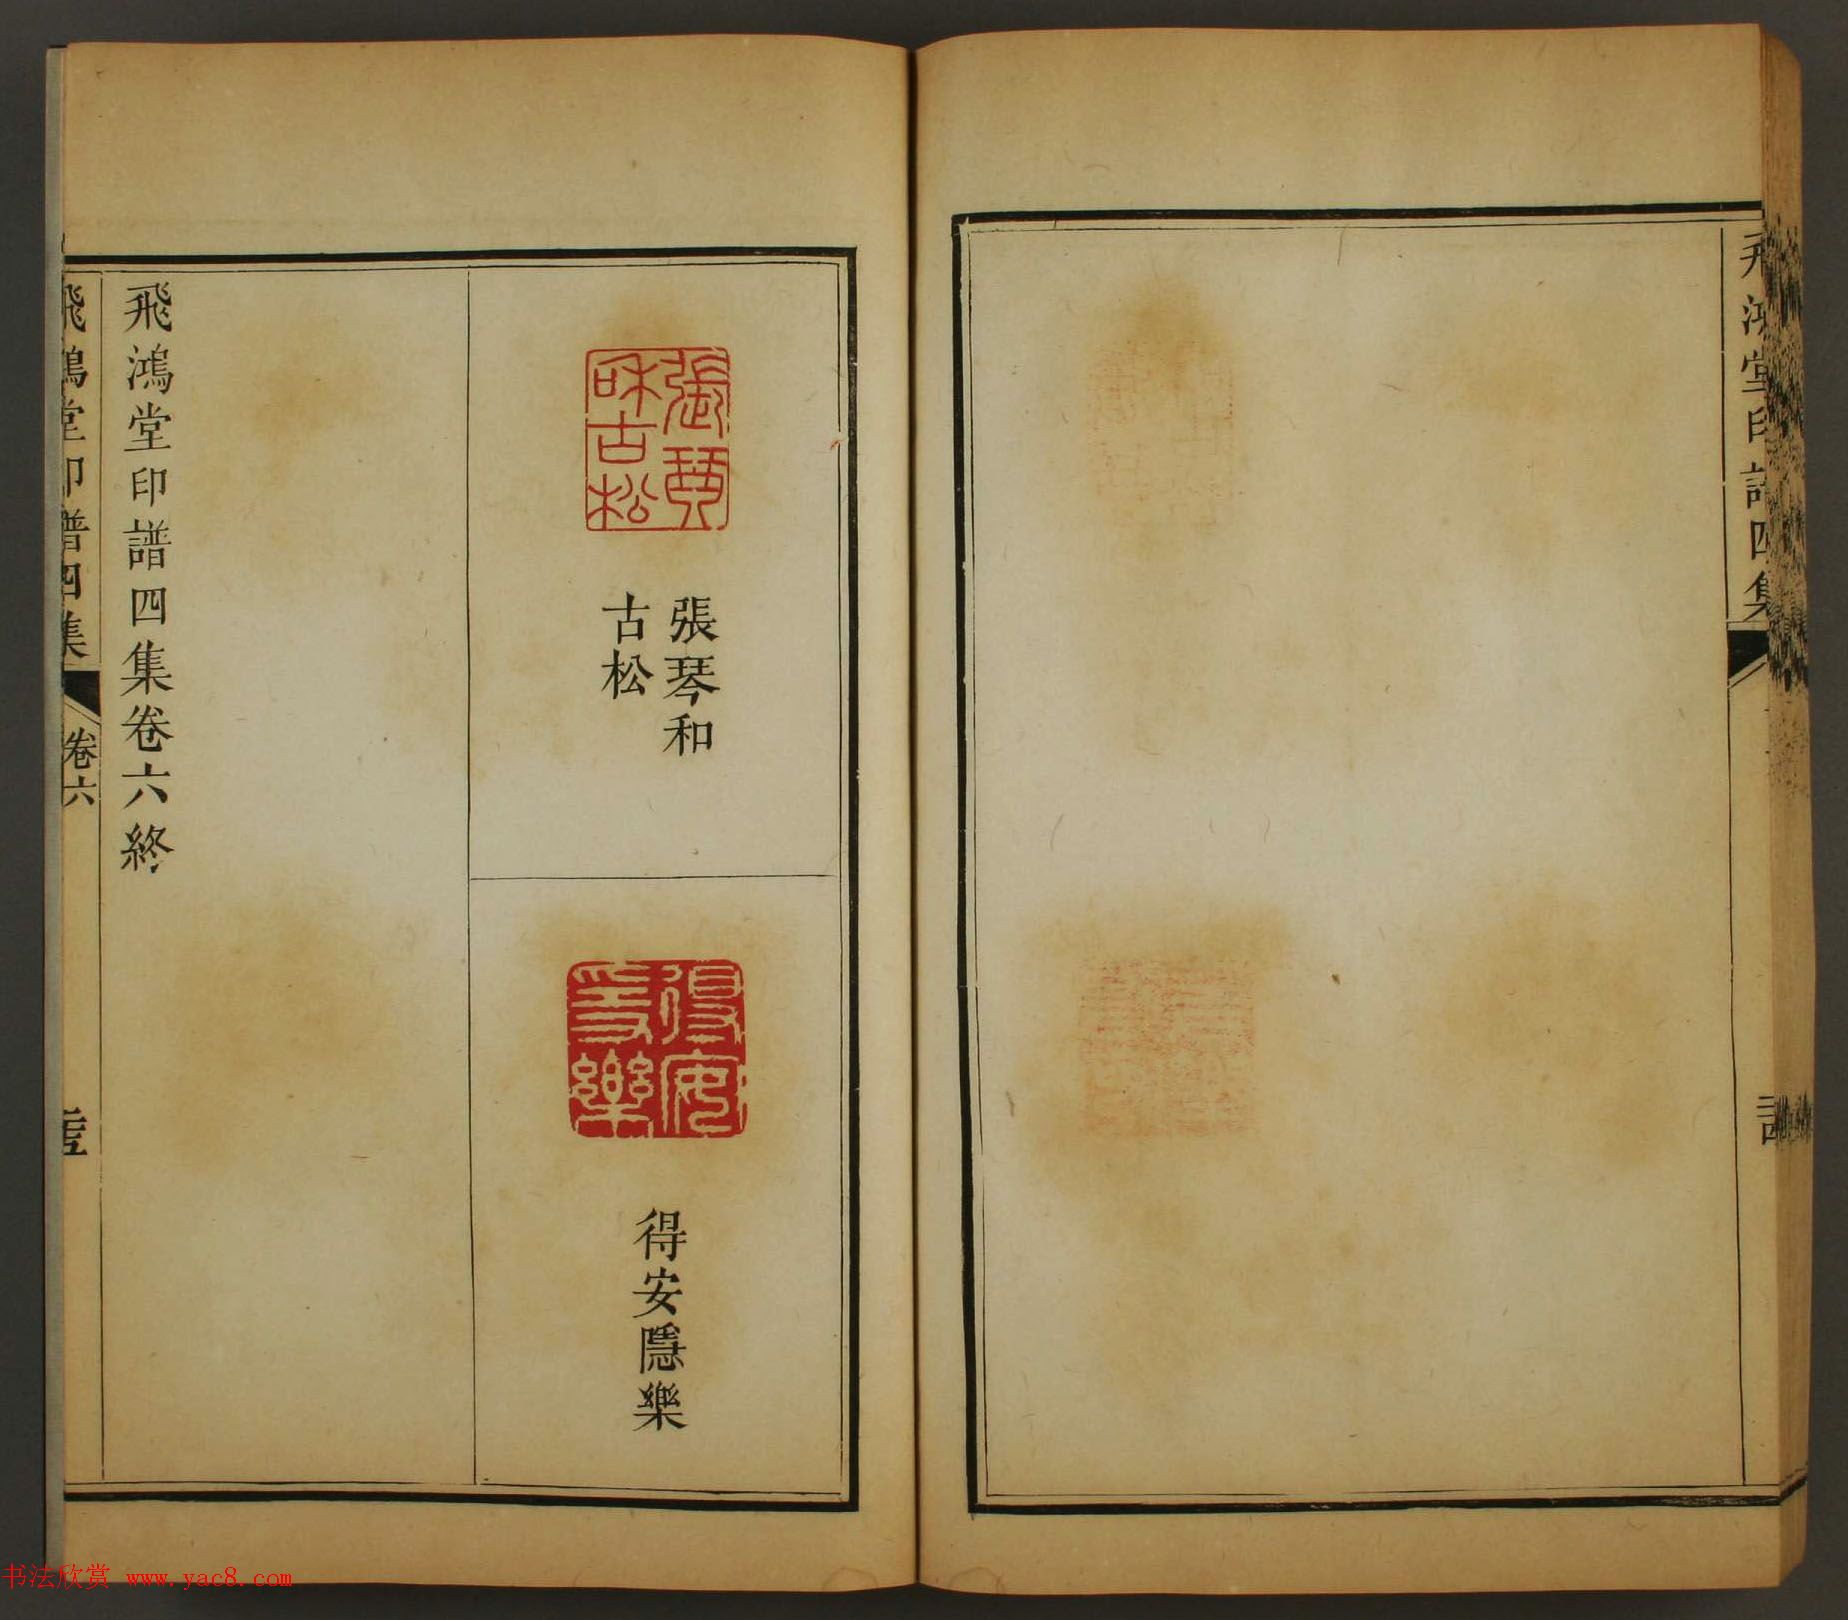 飛鴻堂印譜四集
二四
張琴
和古松
張琴和
古松
得安
㥯樂
得安隱樂
飛鴻堂印譜四集卷六終
飛鴻堂印譜四集
卷六
二五
书法欣赏 www.yac8.com